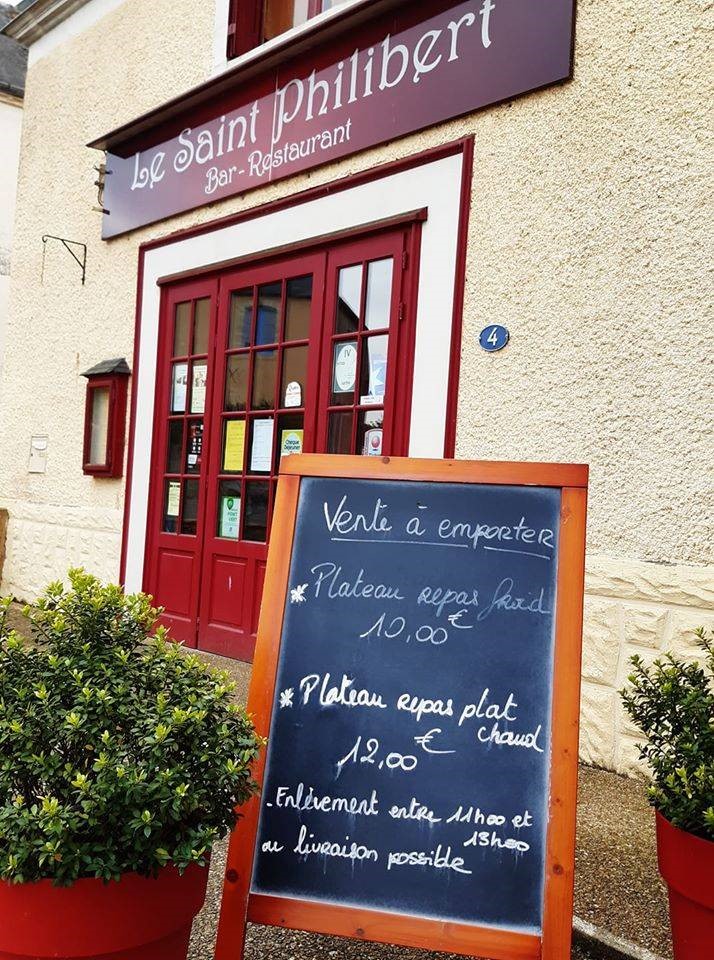 Le Saint Philibert
Bar-Restaurant
4
Vente à emporter
* Plateau repas froid
10,00€
* Plateau repas plat
chaud
12,00 €
- Enlèvement entre 11h00 et
13h00
ou livraison possible